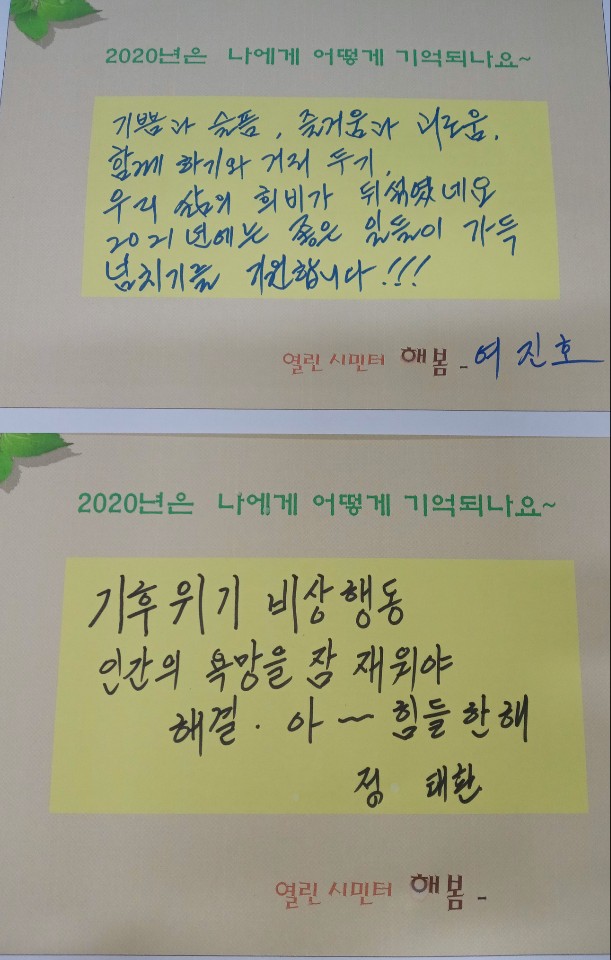 2020년은 나에게 어떻게 기억되나요~
기쁨과 슬픔, 즐거움과 괴로움.
함께 하기와 거리 두기,
우리 삶의 희비가 뒤섞였네요
2021년에는 좋은 일들이 가득
넘치기를 기원합니다!!!
열린 시민터 해봄 - 여진호
2020년은 나에게 어떻게 기억되나요~
기후위기 비상행동
인간의 욕망을 잠 재워야
해결. 아~ 힘들한해
정 태환
열린 시민터 해봄 -